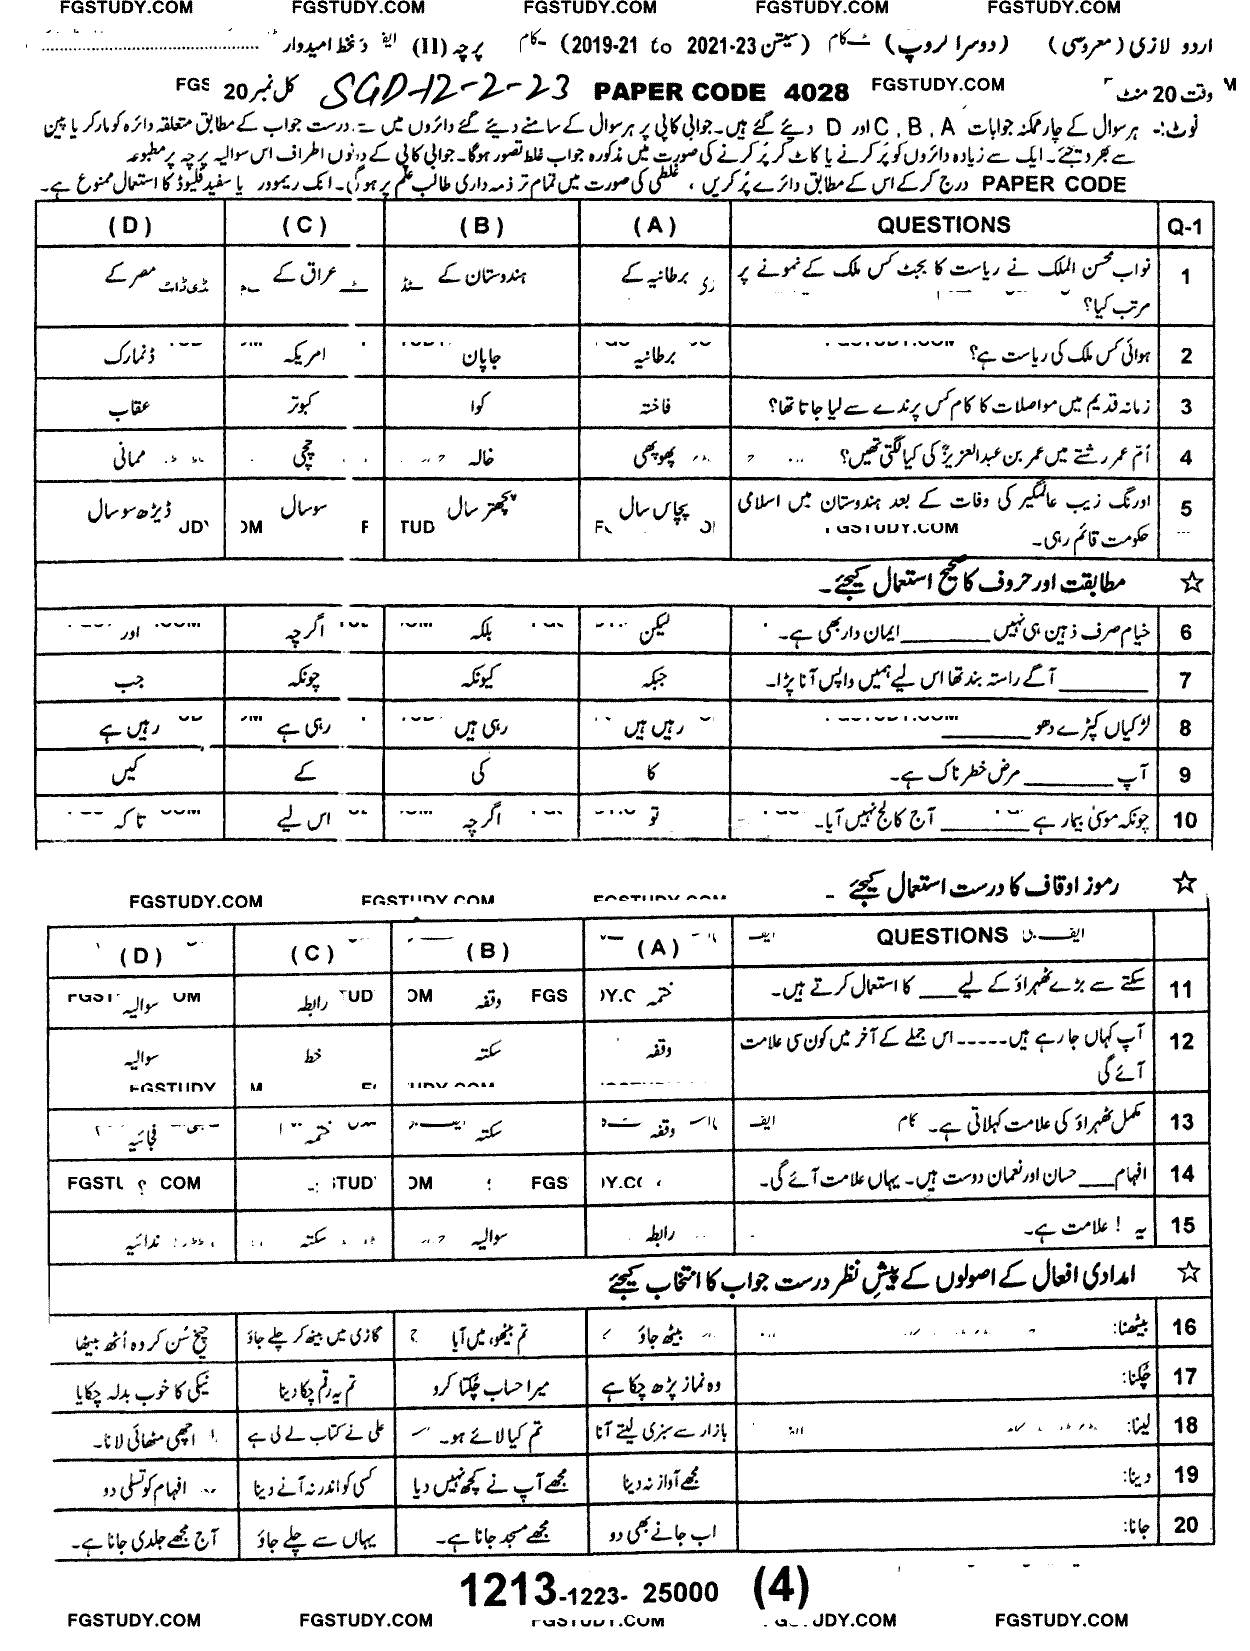 FGSTUDY.COM FGSTUDY.COM FGSTUDY.COM FGSTUDY.COM FGSTUDY.COM
اردو لازمی (معروضی) (دوسرا گروپ) (سیشن 2019-21 to 2021-23) پرچہ (II) دستخط امیدوار
وقت 20 منٹ FGSTUDY.COM PAPER CODE 4028 SGD-12-2-23 کل نمبر 20
نوٹ:- ہر سوال کے چار ممکنہ جوابات A ، B ، C اور D دیئے گئے ہیں۔ جوابی کاپی پر ہر سوال کے سامنے دیئے گئے دائروں میں سے درست جواب کے مطابق متعلقہ دائرہ کو مارکر یا پین
سے بھر دیجئے۔ ایک سے زیادہ دائروں کو پُر کرنے یا کاٹ کر پُر کرنے کی صورت میں مذکورہ جواب غلط تصور ہوگا۔ جوابی کاپی کے دونوں اطراف اس سوالیہ پرچہ پر مطبوعہ
PAPER CODE درج کر کے اس کے مطابق دائرے پُر کریں ، غلطی کی صورت میں تمام تر ذمہ داری طالب علم پر ہوگی۔ انک ریموور یا سفید فلیوڈ کا استعمال ممنوع ہے۔
Q-1 QUESTIONS (A) (B) (C) (D)
1 نواب محسن الملک نے ریاست کا بجٹ کس ملک کے نمونے پر برطانیہ کے ہندوستان کے عراق کے مصر کے
مرتب کیا؟
2 ہوائی کس ملک کی ریاست ہے؟ برطانیہ جاپان امریکہ ڈنمارک
3 زمانہ قدیم میں مواصلات کا کام کس پرندے سے لیا جاتا تھا؟ فاختہ کوا کبوتر عقاب
4 اُمِّ عمر رشتے میں عمر بن عبدالعزیزؒ کی کیا لگتی تھیں؟ پھوپھی خالہ چچی ممانی
5 اورنگ زیب عالمگیر کی وفات کے بعد ہندوستان میں اسلامی پچاس سال پچھتر سال سو سال ڈیڑھ سو سال
حکومت قائم رہی۔ FGSTUDY.COM
☆ مطابقت اور حروف کا صحیح استعمال کیجئے۔
6 خیام صرف ذہین ہی نہیں ______ ایمان دار بھی ہے۔ لیکن بلکہ اگرچہ اور
7 ______ آگے راستہ بند تھا اس لیے ہمیں واپس آنا پڑا۔ جبکہ کیونکہ چونکہ جب
8 لڑکیاں کپڑے دھو ______ رہیں ہیں رہی ہیں رہی ہے رہیں ہے
9 آپ ______ مرض خطرناک ہے۔ کا کی کے کیں
10 چونکہ موسیٰ بیمار ہے ______ آج کالج نہیں آیا۔ تو اگرچہ اس لیے تا کہ
☆ رموز اوقاف کا درست استعمال کیجئے۔
FGSTUDY.COM FGSTUDY.COM FGSTUDY.COM
QUESTIONS (A) (B) (C) (D)
11 سکتے سے بڑے ٹھہراؤ کے لیے ___ کا استعمال کرتے ہیں۔ ختمہ وقفہ رابطہ سوالیہ
12 آپ کہاں جا رہے ہیں ----- اس جملے کے آخر میں کون سی علامت وقفہ سکتہ خط سوالیہ
آئے گی
13 مکمل ٹھہراؤ کی علامت کہلاتی ہے۔ وقفہ سکتہ ختمہ فجائیہ
14 افہام ___ حسان اور نعمان دوست ہیں۔ یہاں علامت آئے گی۔ ، ؛ : ؟
15 یہ ! علامت ہے۔ رابطہ سوالیہ سکتہ ندائیہ
☆ امدادی افعال کے اصولوں کے پیشِ نظر درست جواب کا انتخاب کیجئے
16 بیٹھنا: بیٹھ جاؤ تم بیٹھو، میں آیا گاڑی میں بیٹھ کر چلے جاؤ چیخ سُن کر وہ اُٹھ بیٹھا
17 چُکنا: وہ نماز پڑھ چکا ہے میرا حساب چُکتا کرو تم یہ رقم چکا دینا نیکی کا خوب بدلہ چکایا
18 لینا: بازار سے سبزی لیتے آنا تم کیا لائے ہو۔ علی نے کتاب لے لی ہے اچھی مٹھائی لانا۔
19 دینا: مجھے آواز نہ دینا مجھے آپ نے کچھ نہیں دیا کسی کو اندر نہ آنے دینا افہام کو تسلی دو
20 جانا: اب جانے بھی دو مجھے مسجد جانا ہے۔ یہاں سے چلے جاؤ آج مجھے جلدی جانا ہے۔
1213-1223- 25000 (4)
FGSTUDY.COM FGSTUDY.COM FGSTUDY.COM FGSTUDY.COM FGSTUDY.COM